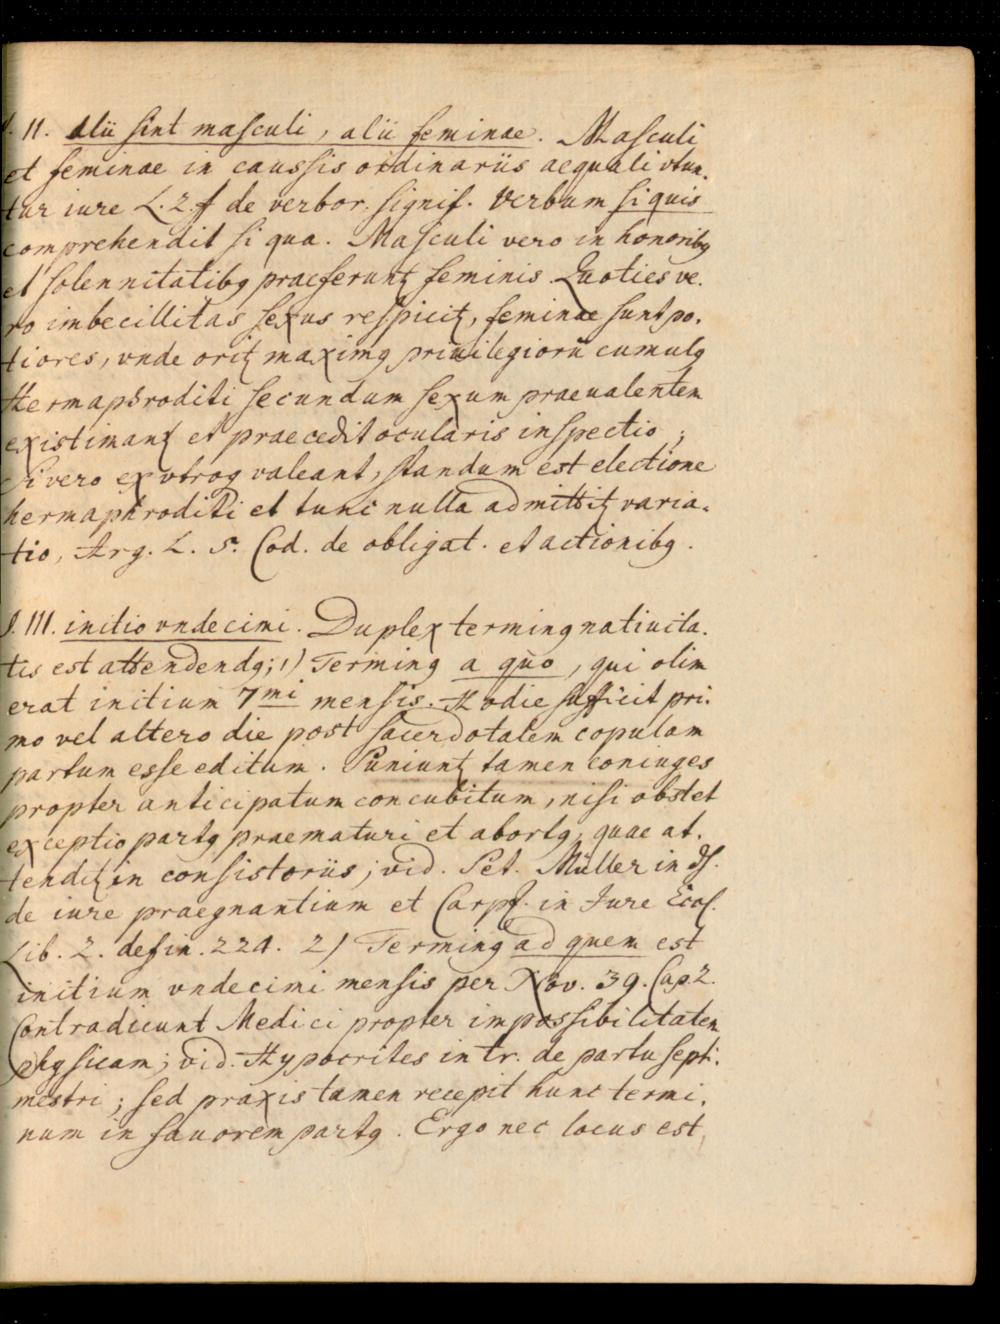 §. II. alii sint masculi, alii feminae. Masculi
et feminae in caussis ordinariis aequali vtun-
tur iure L. 2. ff de verbor. signif. verbum si quis
comprehendit si qua. Masculi vero in honoribꝯ
et solennitatibꝯ praeferunt feminis. Quoties ve-
ro imbecillitas sexus respicit, feminae sunt po-
tiores, vnde orit maximꝯ priuilegiorū cumulꝯ
Hermaphroditi secundum sexum praeualentem
existimant et praecedit ocularis inspectio;
Si vero ex vtroq valeant, standum est electione
hermaphroditi et tunc nulla admittit varia-
tio, Arg. L. 5. Cod. de obligat. et actionibꝯ.
§. III. initio vndecimi. Duplex terminꝯ natiuita-
tis est attendendꝯ; 1) Terminꝯ a quo, qui olim
erat initium 7mi mensis. Hodie sufficit pri-
mo vel altero die post sacerdotalem copulam
partum esse editum. Puniunt tamen coniuges
propter anticipatum concubitum, nisi obstet
exceptio partꝯ praematuri et abortꝯ, quae at-
tendit in consistoriis; vid. Pet. Müller in Ds.
de iure praegnantium et Carpz. in Jure Eccl.
Lib. 2. defin. 224. 2) Terminꝯ ad quem est
initium vndecimi mensis per Nov. 39. Cap. 2.
Contradicunt Medici propter impossibilitatem
physicam; vid. Hypocrites in tr. de partu septi-
mestri; sed praxis tamen recepit hunc termi-
num in fauorem partꝯ. Ergo nec locus est